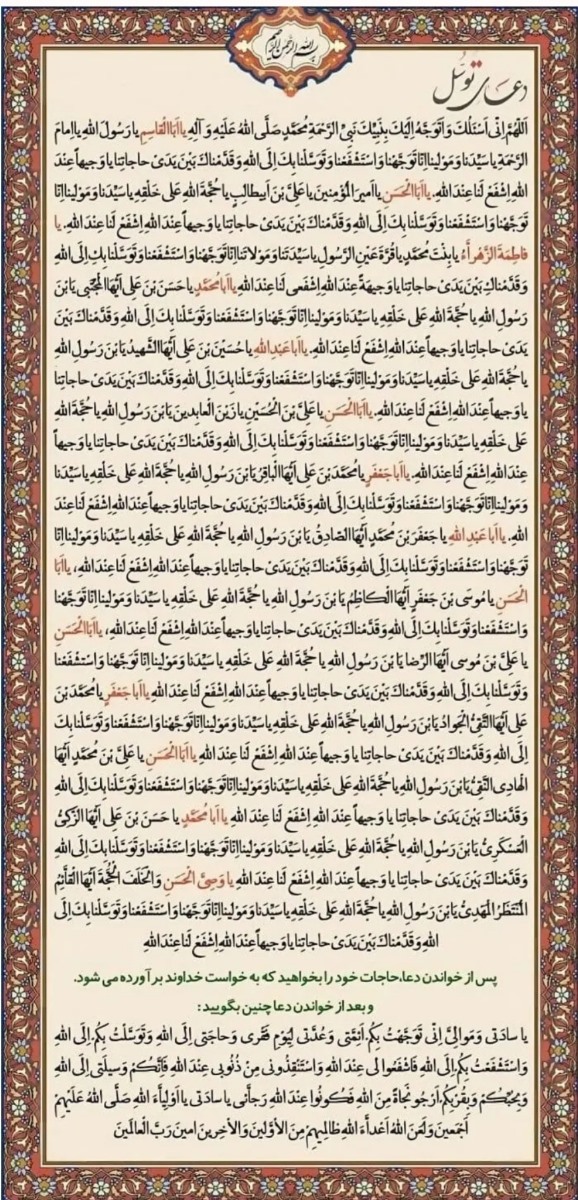 بسم الله الرحمن الرحیم
دعای توسل
اَللّهُمَّ اِنّی اَسْئَلُكَ وَ اَتَوَجَّهُ اِلَیْكَ بِنَبِیِّكَ نَبِیِّ الرَّحْمَةِ مُحَمَّدٍ صَلَّی اللهُ عَلَیْهِ وَ آلِهِ یا اَبَاالْقاسِمِ یا رَسُولَ اللهِ یا اِمامَ
الرَّحْمَةِ یا سَیِّدَنا وَ مَوْلینا اِنّا تَوَجَّهْنا وَ اسْتَشْفَعْنا وَ تَوَسَّلْنا بِكَ اِلَی اللهِ وَ قَدَّمْناكَ بَیْنَ یَدَیْ حاجاتِنا یا وَجیهاً عِنْدَ
اللهِ اِشْفَعْ لَنا عِنْدَ اللهِ. یا اَبَاالْحَسَنِ یا اَمیرَ الْمُؤْمِنینَ یا عَلِیَّ بْنَ اَبیطالِبٍ یا حُجَّةَ اللهِ عَلی خَلْقِهِ یا سَیِّدَنا وَ مَوْلینا اِنّا
تَوَجَّهْنا وَ اسْتَشْفَعْنا وَ تَوَسَّلْنا بِكَ اِلَی اللهِ وَ قَدَّمْناكَ بَیْنَ یَدَیْ حاجاتِنا یا وَجیهاً عِنْدَ اللهِ اِشْفَعْ لَنا عِنْدَ اللهِ. یا
فاطِمَةَ الزَّهْراءُ یا بِنْتَ مُحَمَّدٍ یا قُرَّةَ عَیْنِ الرَّسُولِ یا سَیِّدَتَنا وَ مَوْلاتَنا اِنّا تَوَجَّهْنا وَ اسْتَشْفَعْنا وَ تَوَسَّلْنا بِكِ اِلَی اللهِ
وَ قَدَّمْناكِ بَیْنَ یَدَیْ حاجاتِنا یا وَجیهَةً عِنْدَ اللهِ اِشْفَعی لَنا عِنْدَ اللهِ یا اَبا مُحَمَّدٍ یا حَسَنَ بْنَ عَلِیٍّ اَیُّهَا الْمُجْتَبی یَابْنَ
رَسُولِ اللهِ یا حُجَّةَ اللهِ عَلی خَلْقِهِ یا سَیِّدَنا وَ مَوْلینا اِنّا تَوَجَّهْنا وَ اسْتَشْفَعْنا وَ تَوَسَّلْنا بِكَ اِلَی اللهِ وَ قَدَّمْناكَ بَیْنَ
یَدَیْ حاجاتِنا یا وَجیهاً عِنْدَ اللهِ اِشْفَعْ لَنا عِنْدَ اللهِ. یا اَبا عَبْدِ اللهِ یا حُسَیْنَ بْنَ عَلِیٍّ اَیُّهَا الشَّهیدُ یَابْنَ رَسُولِ اللهِ
یا حُجَّةَ اللهِ عَلی خَلْقِهِ یا سَیِّدَنا وَ مَوْلینا اِنّا تَوَجَّهْنا وَ اسْتَشْفَعْنا وَ تَوَسَّلْنا بِكَ اِلَی اللهِ وَ قَدَّمْناكَ بَیْنَ یَدَیْ حاجاتِنا
یا وَجیهاً عِنْدَ اللهِ اِشْفَعْ لَنا عِنْدَ اللهِ. یا اَبَاالْحَسَنِ یا عَلِیَّ بْنَ الْحُسَیْنِ یا زَیْنَ الْعابِدینَ یَابْنَ رَسُولِ اللهِ یا حُجَّةَ اللهِ
عَلی خَلْقِهِ یا سَیِّدَنا وَ مَوْلینا اِنّا تَوَجَّهْنا وَ اسْتَشْفَعْنا وَ تَوَسَّلْنا بِكَ اِلَی اللهِ وَ قَدَّمْناكَ بَیْنَ یَدَیْ حاجاتِنا یا وَجیهاً
عِنْدَ اللهِ اِشْفَعْ لَنا عِنْدَ اللهِ. یا اَبا جَعْفَرٍ یا مُحَمَّدَ بْنَ عَلِیٍّ اَیُّهَا الْباقِرُ یَابْنَ رَسُولِ اللهِ یا حُجَّةَ اللهِ عَلی خَلْقِهِ یا سَیِّدَنا
وَ مَوْلینا اِنّا تَوَجَّهْنا وَ اسْتَشْفَعْنا وَ تَوَسَّلْنا بِكَ اِلَی اللهِ وَ قَدَّمْناكَ بَیْنَ یَدَیْ حاجاتِنا یا وَجیهاً عِنْدَ اللهِ اِشْفَعْ لَنا عِنْدَ
اللهِ. یا اَبا عَبْدِ اللهِ یا جَعْفَرَ بْنَ مُحَمَّدٍ اَیُّهَا الصّادِقُ یَابْنَ رَسُولِ اللهِ یا حُجَّةَ اللهِ عَلی خَلْقِهِ یا سَیِّدَنا وَ مَوْلینا اِنّا
تَوَجَّهْنا وَ اسْتَشْفَعْنا وَ تَوَسَّلْنا بِكَ اِلَی اللهِ وَ قَدَّمْناكَ بَیْنَ یَدَیْ حاجاتِنا یا وَجیهاً عِنْدَ اللهِ اِشْفَعْ لَنا عِنْدَ اللهِ، یا اَبَا
الْحَسَنِ یا مُوسَی بْنَ جَعْفَرٍ اَیُّهَا الْكاظِمُ یَابْنَ رَسُولِ اللهِ یا حُجَّةَ اللهِ عَلی خَلْقِهِ یا سَیِّدَنا وَ مَوْلینا اِنّا تَوَجَّهْنا
وَ اسْتَشْفَعْنا وَ تَوَسَّلْنا بِكَ اِلَی اللهِ وَ قَدَّمْناكَ بَیْنَ یَدَیْ حاجاتِنا یا وَجیهاً عِنْدَ اللهِ اِشْفَعْ لَنا عِنْدَ اللهِ، یا اَبَاالْحَسَنِ
یا عَلِیَّ بْنَ مُوسی اَیُّهَا الرِّضا یَابْنَ رَسُولِ اللهِ یا حُجَّةَ اللهِ عَلی خَلْقِهِ یا سَیِّدَنا وَ مَوْلینا اِنّا تَوَجَّهْنا وَ اسْتَشْفَعْنا
وَ تَوَسَّلْنا بِكَ اِلَی اللهِ وَ قَدَّمْناكَ بَیْنَ یَدَیْ حاجاتِنا یا وَجیهاً عِنْدَ اللهِ اِشْفَعْ لَنا عِنْدَ اللهِ یا اَبا جَعْفَرٍ یا مُحَمَّدَ بْنَ
عَلِیٍّ اَیُّهَا التَّقِیُّ الْجَوادُ یَابْنَ رَسُولِ اللهِ یا حُجَّةَ اللهِ عَلی خَلْقِهِ یا سَیِّدَنا وَ مَوْلینا اِنّا تَوَجَّهْنا وَ اسْتَشْفَعْنا وَ تَوَسَّلْنا بِكَ
اِلَی اللهِ وَ قَدَّمْناكَ بَیْنَ یَدَیْ حاجاتِنا یا وَجیهاً عِنْدَ اللهِ اِشْفَعْ لَنا عِنْدَ اللهِ یا اَبَاالْحَسَنِ یا عَلِیَّ بْنَ مُحَمَّدٍ اَیُّهَا
الْهادِی النَّقِیُّ یَابْنَ رَسُولِ اللهِ یا حُجَّةَ اللهِ عَلی خَلْقِهِ یا سَیِّدَنا وَ مَوْلینا اِنّا تَوَجَّهْنا وَ اسْتَشْفَعْنا وَ تَوَسَّلْنا بِكَ اِلَی اللهِ
وَ قَدَّمْناكَ بَیْنَ یَدَیْ حاجاتِنا یا وَجیهاً عِنْدَ اللهِ اِشْفَعْ لَنا عِنْدَ اللهِ یا اَبا مُحَمَّدٍ یا حَسَنَ بْنَ عَلِیٍّ اَیُّهَا الزَّكِیُّ
الْعَسْكَرِیُّ یَابْنَ رَسُولِ اللهِ یا حُجَّةَ اللهِ عَلی خَلْقِهِ یا سَیِّدَنا وَ مَوْلینا اِنّا تَوَجَّهْنا وَ اسْتَشْفَعْنا وَ تَوَسَّلْنا بِكَ اِلَی اللهِ
وَ قَدَّمْناكَ بَیْنَ یَدَیْ حاجاتِنا یا وَجیهاً عِنْدَ اللهِ اِشْفَعْ لَنا عِنْدَ اللهِ یا وَصِیَّ الْحَسَنِ وَ الْخَلَفَ الْحُجَّةَ اَیُّهَا الْقآئِمُ
الْمُنْتَظَرُ الْمَهْدِیُّ یَابْنَ رَسُولِ اللهِ یا حُجَّةَ اللهِ عَلی خَلْقِهِ یا سَیِّدَنا وَ مَوْلینا اِنّا تَوَجَّهْنا وَ اسْتَشْفَعْنا وَ تَوَسَّلْنا بِكَ اِلَی
اللهِ وَ قَدَّمْناكَ بَیْنَ یَدَیْ حاجاتِنا یا وَجیهاً عِنْدَ اللهِ اِشْفَعْ لَنا عِنْدَ اللهِ
پس از خواندن دعا، حاجات خود را بخواهید که به خواست خداوند برآورده می شود.
و بعد از خواندن دعا چنین بگویید:
یا سادَتی وَ مَوالِیَّ اِنّی تَوَجَّهْتُ بِكُمْ اَئِمَّتی وَ عُدَّتی لِیَوْمِ فَقْری وَ حاجَتی اِلَی اللهِ وَ تَوَسَّلْتُ بِكُمْ اِلَی اللهِ
وَ اسْتَشْفَعْتُ بِكُمْ اِلَی اللهِ فَاشْفَعُوا لی عِنْدَ اللهِ وَ اسْتَنْقِذُونی مِنْ ذُنُوبی عِنْدَ اللهِ فَاِنَّكُمْ وَسیلَتی اِلَی اللهِ
وَ بِحُبِّكُمْ وَ بِقُرْبِكُمْ اَرْجُو نَجاةً مِنَ اللهِ فَكُونُوا عِنْدَ اللهِ رَجآئی یا سادَتی یا اَوْلِیآءَ اللهِ صَلَّی اللهُ عَلَیْهِمْ
اَجْمَعینَ وَ لَعَنَ اللهُ اَعْدآءَ اللهِ ظالِمیهِمْ مِنَ الْاَوَّلینَ وَ الْاخِرینَ امینَ رَبَّ الْعالَمینَ